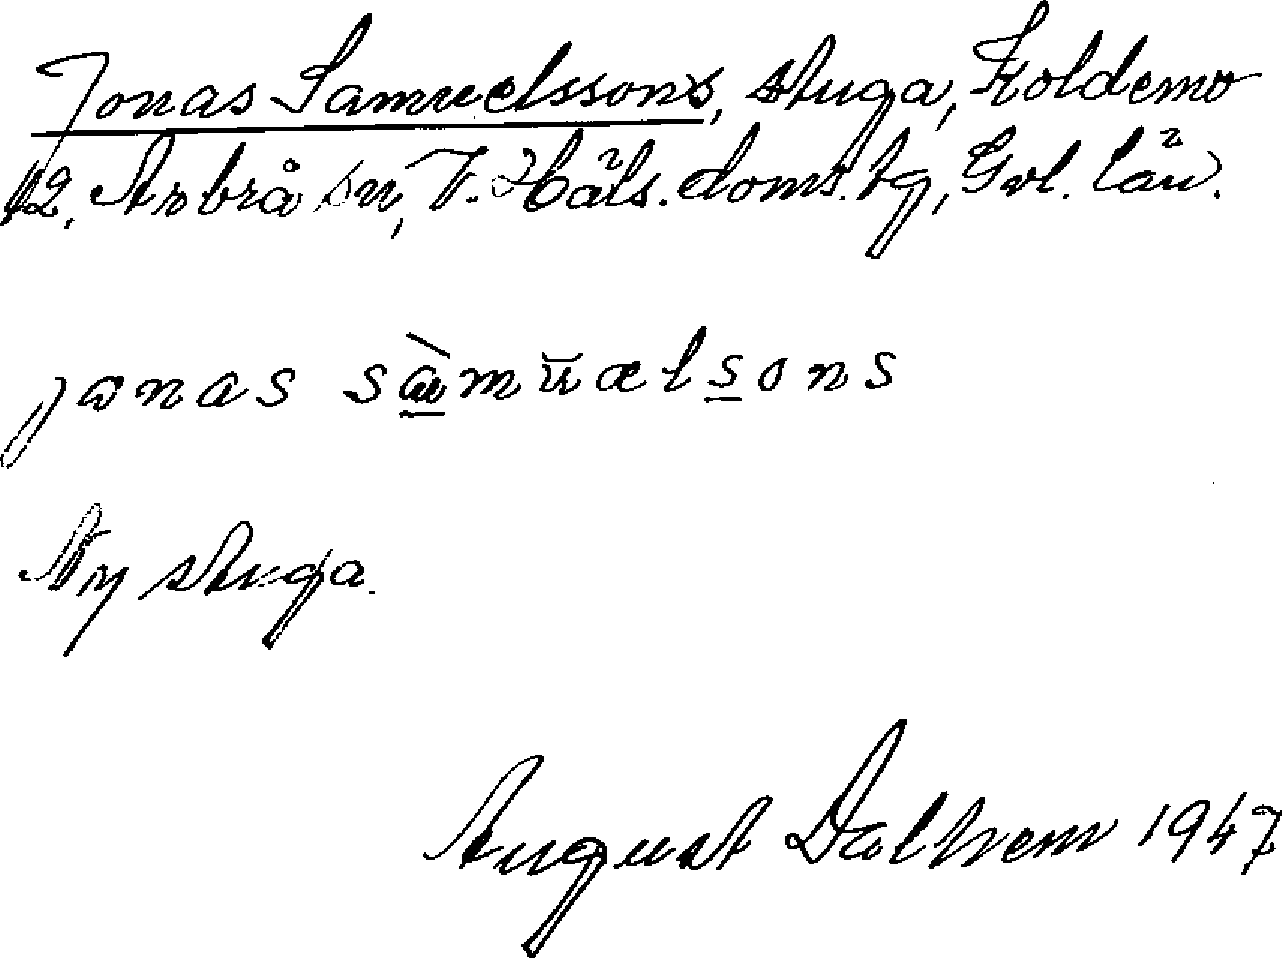 Jonas Samuelssons, stuga, Koldemo
12, Arbrå sn, V. Häls. doms. tg, Gvl. län.
jonas sàmuælsons
Ny stuga.
August Dalhem 1947